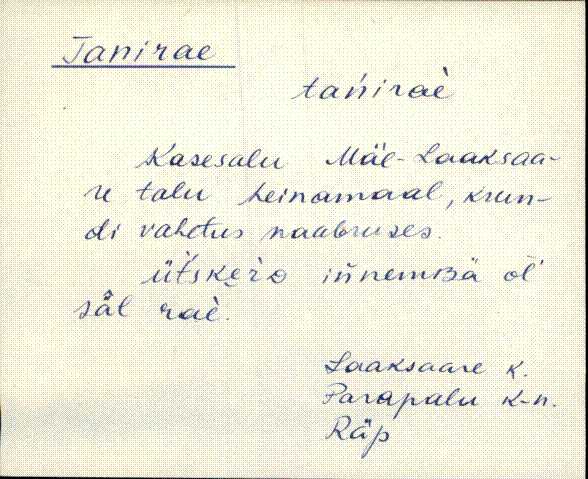 Tanirae
tańiraè
Kasesalu Mäe-Laaksaa-
re talu heinamaal, krun-
di vahetus naabruses.
ütśkèrd iñnembä õĺ
säl raè.
Laaksaare k.
Parapalu k-n.
Räp